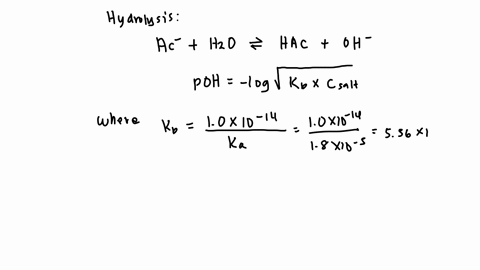 Hydrolysis:
Ac⁻ + H2O ⇌ HAc + OH⁻
pOH = -log √(Kb × Csalt)
where Kb = 1.0 × 10⁻¹⁴ / Ka = 1.0 × 10⁻¹⁴ / 1.8 × 10⁻⁵ = 5.56 × 1